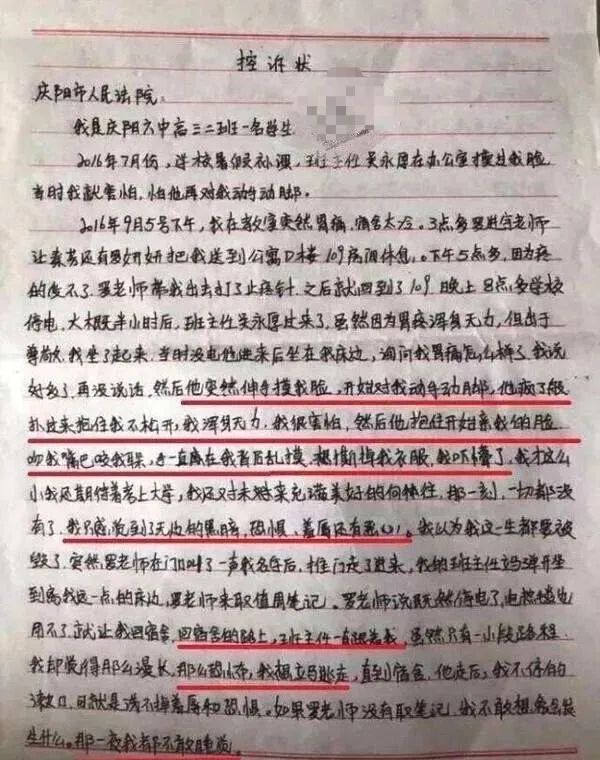 控诉状
庆阳市人民法院：
我是庆阳六中高三二班一名学生
2016年7月份，学校暑假补课，班主任吴永厚在办公室摸过我脸
当时我就害怕，怕他再对我动手动脚。
2016年9月5号下午，我在教室突然胃痛，宿舍太冷。3点多罗进宇老师
让秦芳还有罗妍妍把我送到公寓D楼109房间休息。下午5点多，因为疼
的受不了，罗老师带我出去打了止疼针，之后就回到了109晚上8点多学校
停电，大概半小时后，班主任吴永厚过来了，虽然因为胃疼浑身无力，但出于
尊敬，我坐了起来，当时没电他进来后坐在我床边，询问我胃痛怎么样了，我说
好多了，再没说话，然后他突然伸手摸我脸，开始对我动手动脚，他疯了般
扑过来抱住我不松开，我浑身无力，我很害怕，然后他抱住开始亲我的脸
吻我嘴巴咬我耳朵，手一直在我背后乱摸，想撕掉我衣服，我吓懵了，我才这么
小我还期待着考上大学，我还对未来充满美好的向往，那一刻，一切都没
有了，我只感觉到了无边的黑暗，恐惧、羞辱还有恶心，我以为我这一生都要被
毁了，突然罗老师在门口叫了一声我名字后，推门走了进来，我的班主任立马弹开坐
到离我远一点的床边，罗老师来取值周笔记。罗老师说既然停电了，电热毯也
用不了就让我回宿舍，回宿舍的路上，班主任一直跟着我，虽然只有一小段路程
我却觉得那么漫长，那么恐怖，我想立马逃走，直到宿舍，他走后，我不停的
漱口，可就是洗不掉羞辱和恐惧。如果罗老师没有取笔记，我不敢想象会发
生什么。那一夜我都不敢睡觉。